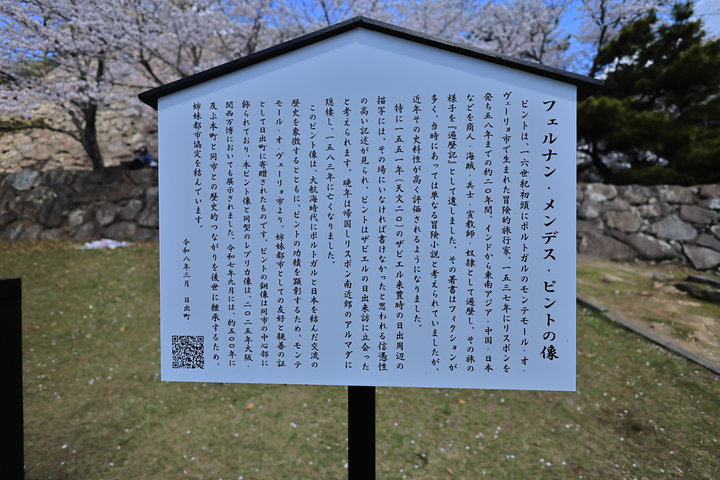 フェルナン・メンデス・ピントの像
ピントは、一六世紀初頭にポルトガルのモンテモール・オ・
ヴェーリョ市で生まれた冒険的旅行家。一五三七年にリスボンを
発ち五八年までの約二〇年間、インドから東南アジア・中国・日本
などを商人・海賊・兵士・宣教師・奴隷として遍歴し、その旅の
様子を『遍歴記』として遺しました。その著書はフィクションが
多く、当時にあっては単なる冒険小説と考えられていましたが、
近年その史料性が高く評価されるようになりました。
特に一五五一年(天文二〇)のザビエル来豊時の日出周辺の
描写には、その場にいなければ書けなかったと思われる信憑性
の高い記述が見られ、ピントはザビエルの日出来訪に立会った
と考えられます。晩年は帰国しリスボン南近郊のアルマダに
隠棲し、一五八三年に亡くなりました。
このピント像は、大航海時代にポルトガルと日本を結んだ交流の
歴史を象徴するとともに、ピントの功績を顕彰するため、モンテ
モール・オ・ヴェーリョ市より、姉妹都市としての友好と親善の証
として日出町に寄贈されたものです。ピントの銅像は同市の中心部に
飾られており、本ピント像と同規模のレプリカ像は、二〇二五年大阪・
関西万博においても展示されました。令和七年九月には、約五〇〇年に
及ぶ本町と同市との歴史的つながりを後世に継承するため、
姉妹都市協定を結んでいます。
令和八年三月　日出町